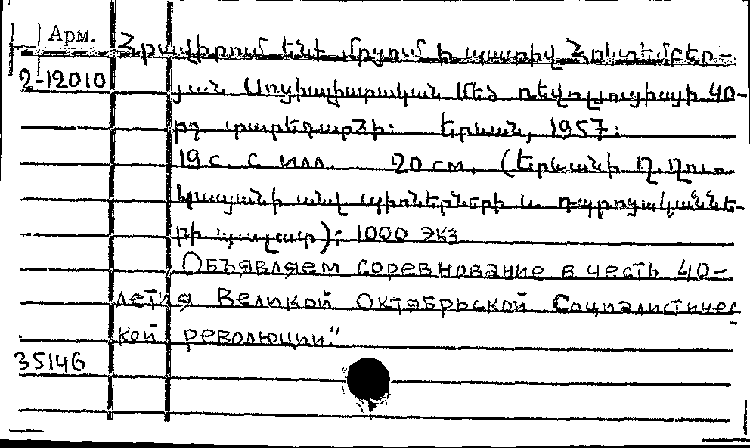 Арм.
Հրավիրում ենք մրցում ի պատիվ Հոկտեմբեր-
2-12010
յան Սոցիալիստական Մեծ ռեվոլյուցիայի 40-
րդ տարեդարձի: Երևան, 1957:
19 с. с илл. 20 см. (Երևանի
պիոներների և դպրոցականնե-
րի պալատ): 1000 экз
Объявляем соревнование в честь 40-
летия Великой Октябрьской Социалистичес
кой революции"
35146